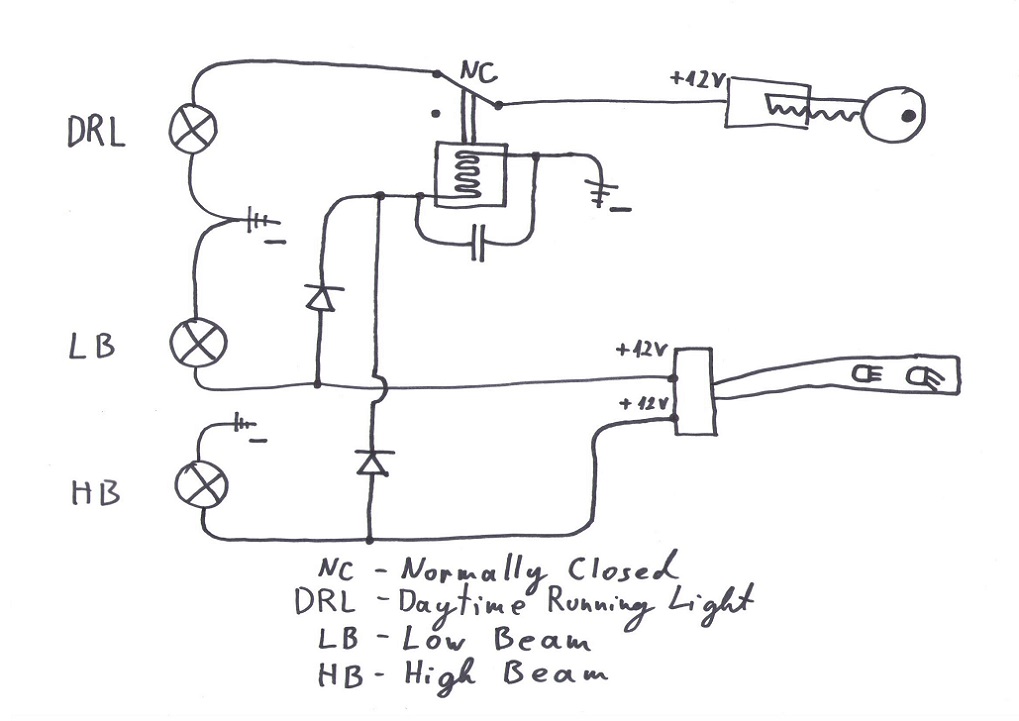 NC
+12V
DRL
LB
+12V
+12V
HB
NC - Normally Closed
DRL - Daytime Running Light
LB - Low Beam
HB - High Beam